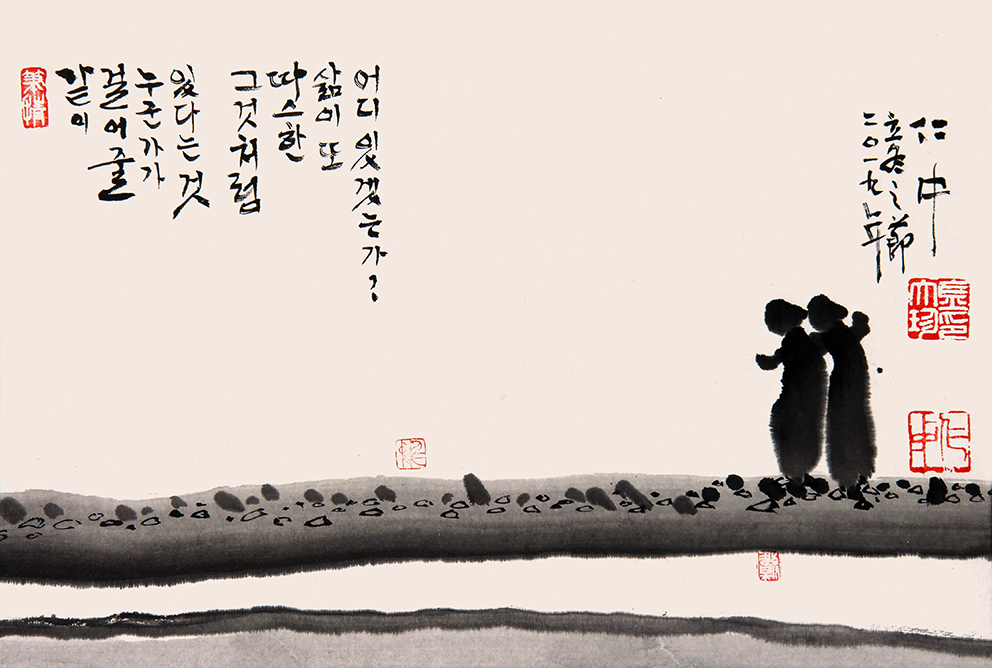 같이
걸어줄
누군가가
있다는 것
그것처럼
따스한
삶이 또
어디 있겠는가?
二〇一九年
立冬之節
仁中